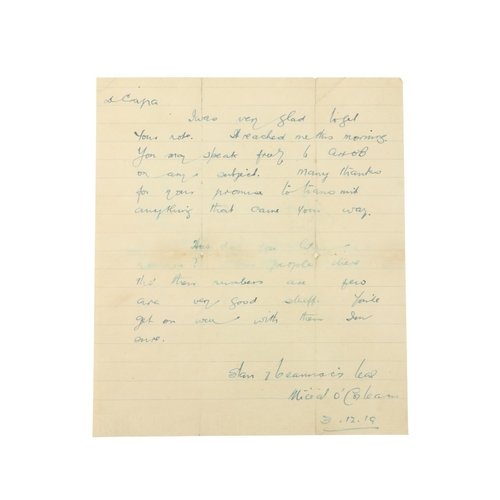 A Ċara
I was very glad to get
your note. It reached me this morning
You may speak freely to
on any subject. Many thanks
for your promise to transmit
anything that came your way.
How do you like
people there
tho' their numbers are few
are very good stuff. You'll
get on well with them I'm
sure.
Mícéal Ó
3.12.19